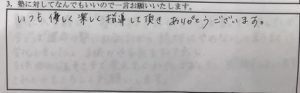 3. 塾に対してなんでもいいので一言お願いいたします。
いつも優しく楽しく指導して頂きありがとうございます。